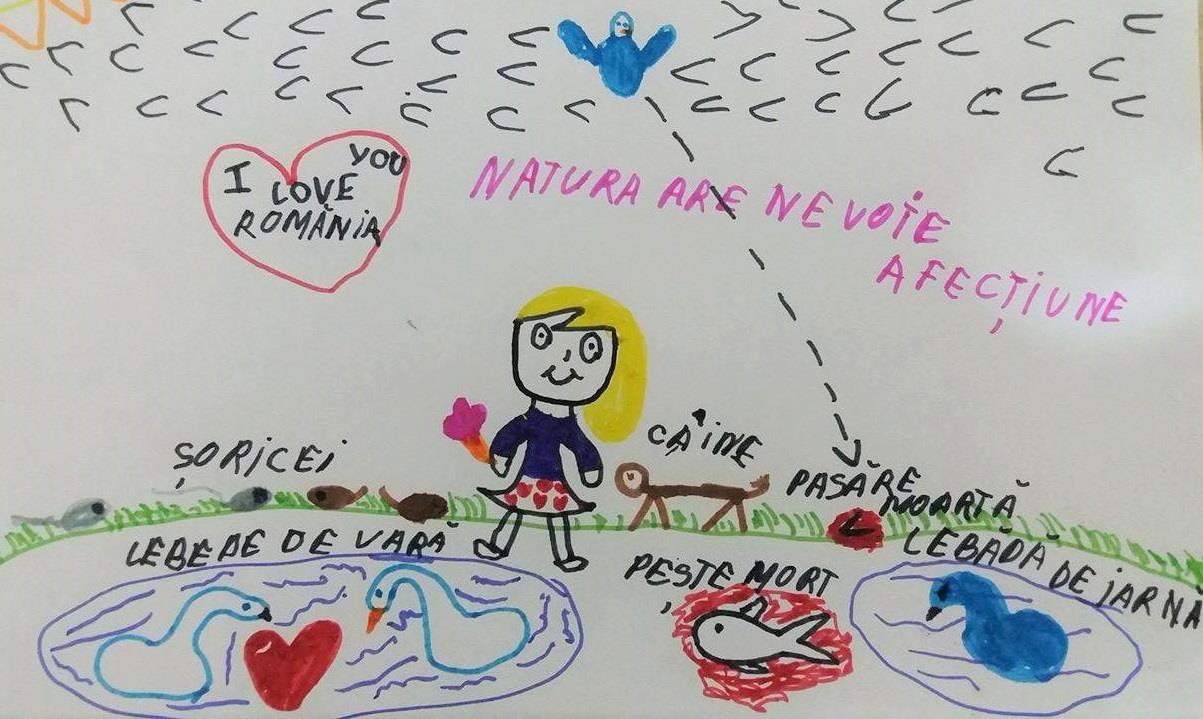 I LOVE YOU
ROMÂNIA
NATURA ARE NEVOIE
AFECȚIUNE
ȘORICEI
CÂINE
PASĂRE
MOARTĂ
LEBEDE DE VARĂ
PEȘTE MORT
LEBĂDĂ DE IARNA